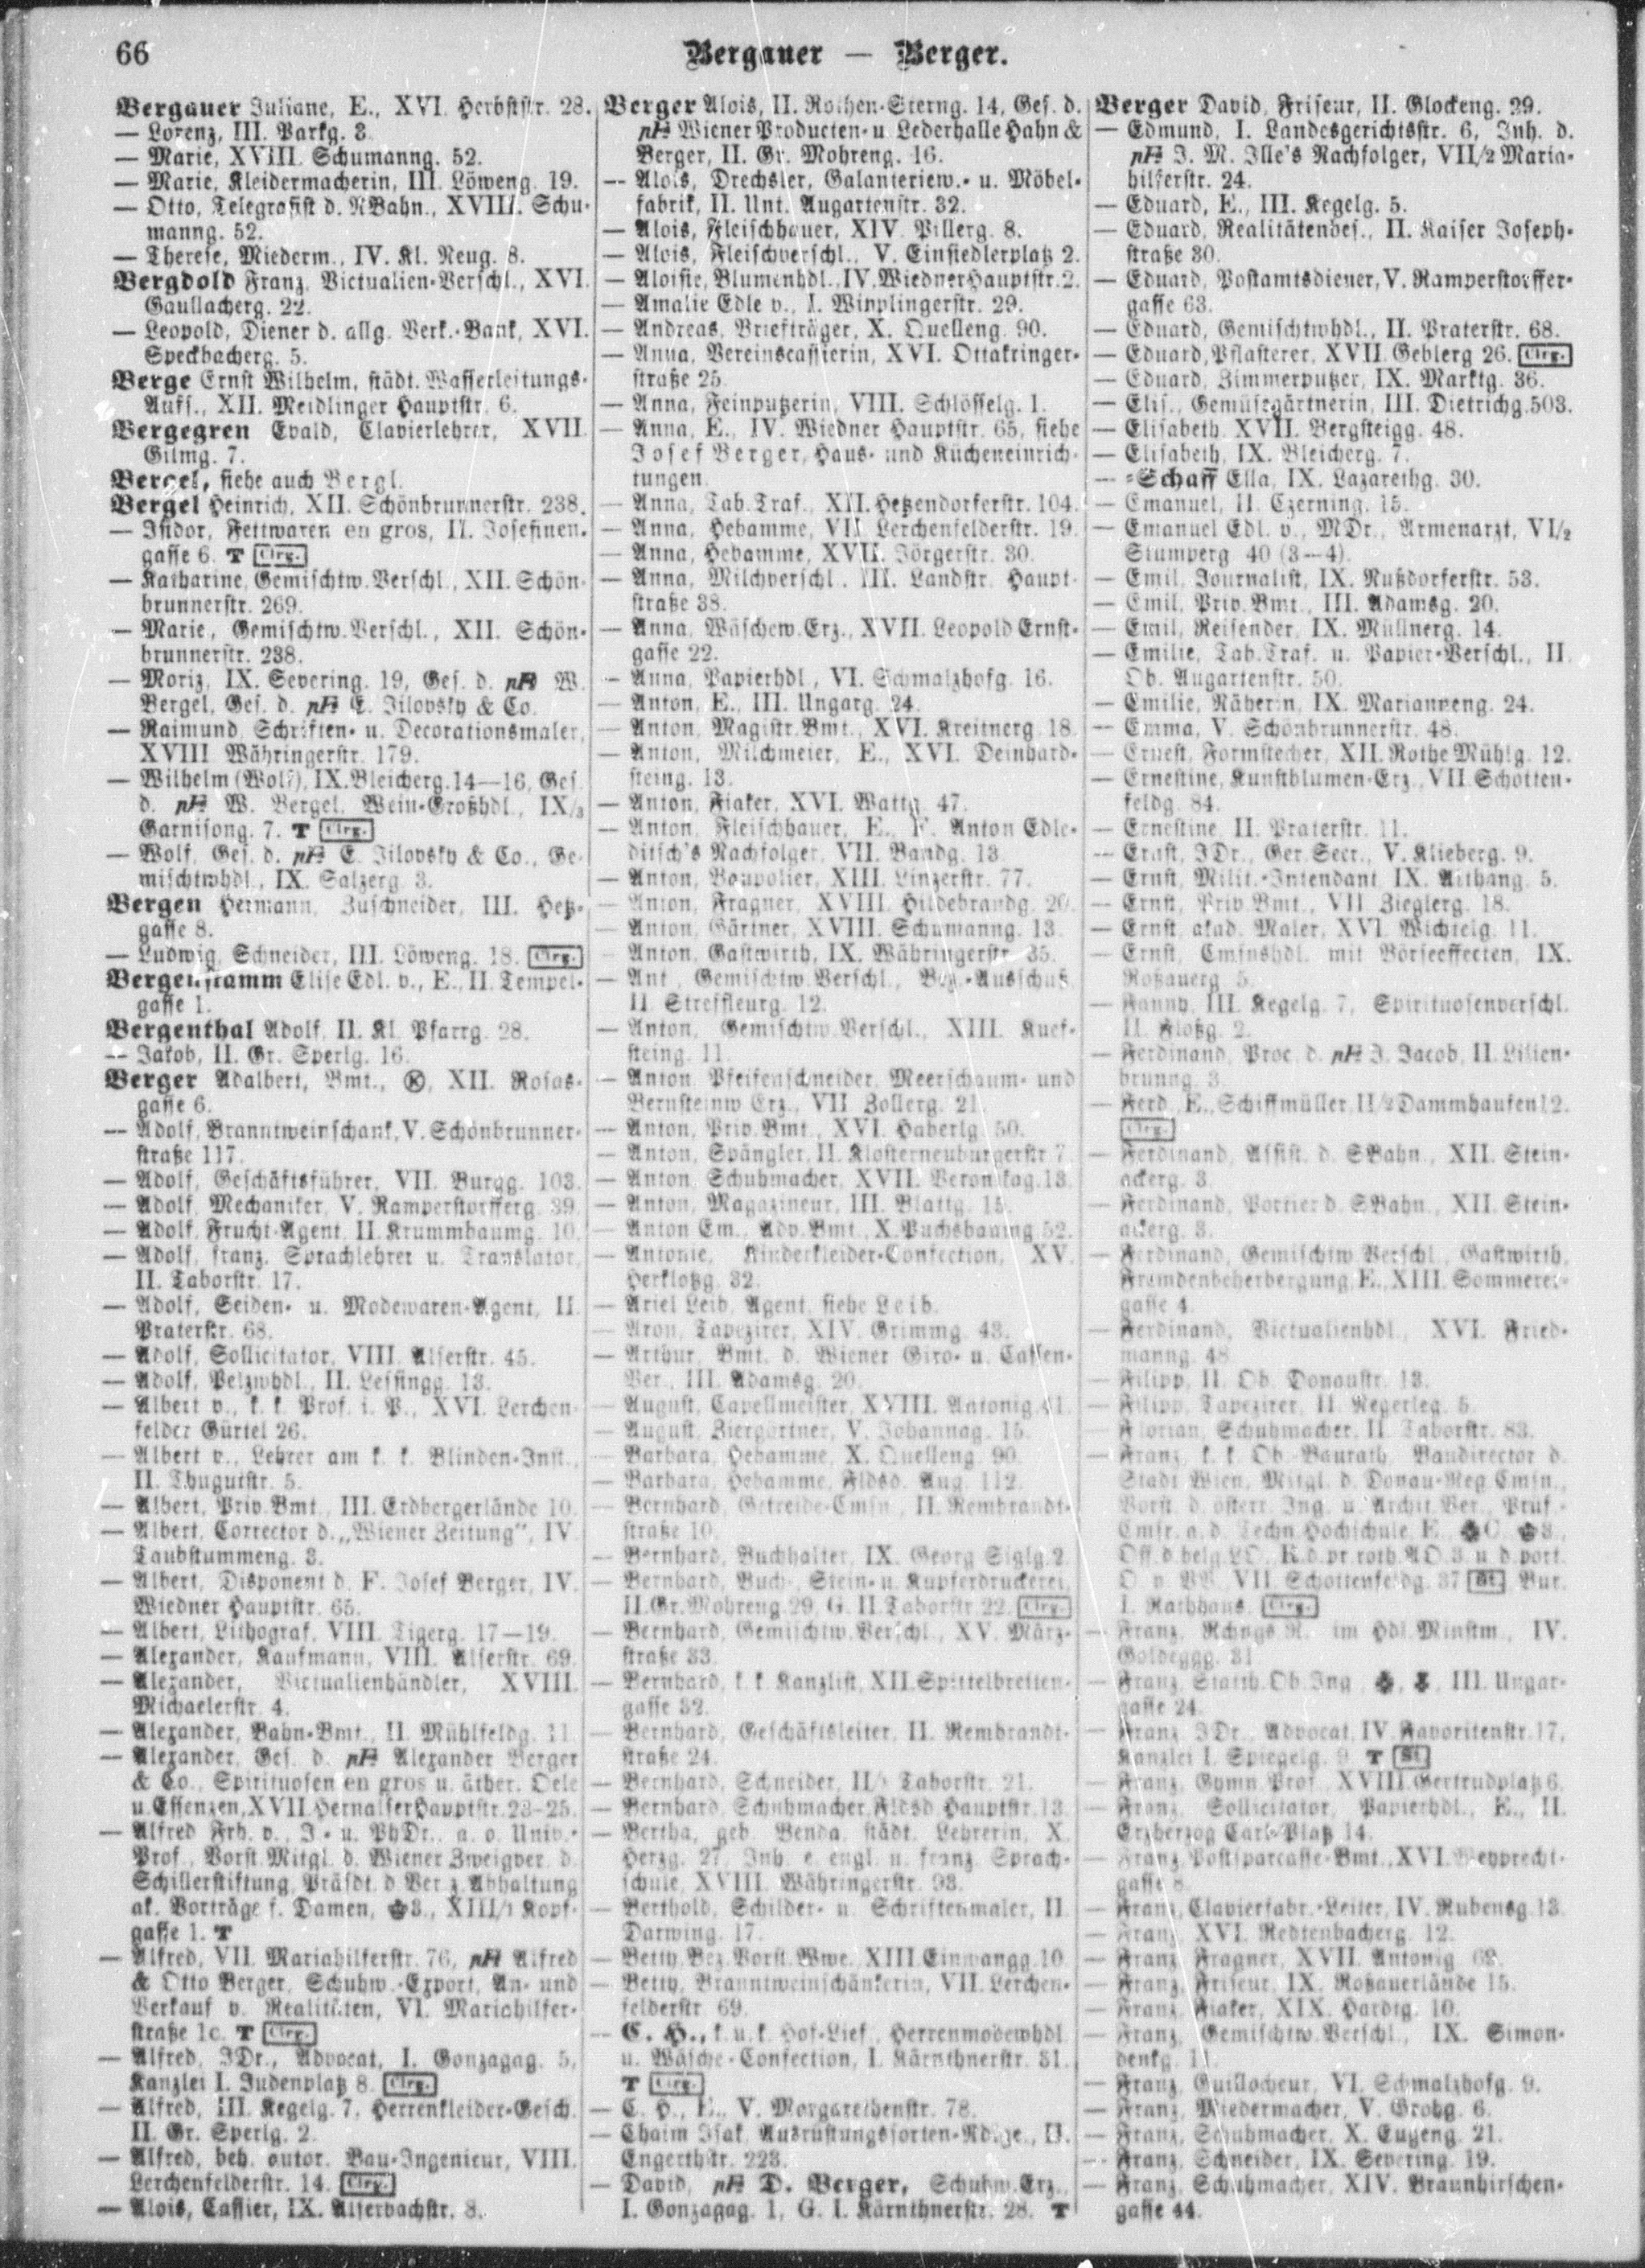 66
Bergauer — Berger.
Bergauer Juliane, E., XVI. Herbststr. 28.
— Lorenz, III. Parkg. 3.
— Marie, XVIII. Schumanng. 52.
— Marie, Kleidermacherin, III. Löweng. 19.
— Otto, Telegrafist d. NBahn., XVIII. Schu-
manng. 52.
— Therese, Miederm., IV. Kl. Neug. 8.
Bergdold Franz, Victualien-Verschl., XVI.
Gaullacherg. 22.
— Leopold, Diener d. allg. Verk.-Bank, XVI.
Speckbacherg. 5.
Berge Ernst Wilhelm, städt. Wasserleitungs-
Aufs., XII. Meidlinger Hauptstr. 6.
Bergegren Evald, Clavierlehrer, XVII.
Gilmg. 7.
Bergel, siehe auch Bergl.
Bergel Heinrich, XII. Schönbrunnerstr. 238.
— Isidor, Fettwaren en gros, II. Josefinen-
gasse 6. T Clrg.
— Katharine, Gemischtw.Verschl., XII. Schön-
brunnerstr. 269.
— Marie, Gemischtw.Verschl., XII. Schön-
brunnerstr. 238.
— Moriz, IX. Severing. 19, Ges. d. pF W.
Bergel, Ges. d. pF E. Jilovsky & Co.
— Raimund, Schriften- u. Decorationsmaler,
XVIII. Währingerstr. 179.
— Wilhelm (Wolf), IX. Bleicherg. 14—16, Ges.
d. pF W. Bergel, Wein-Großhdl., IX/3
Garnisong. 7. T Clrg.
— Wolf, Ges. d. pF E. Jilovsky & Co., Ge-
mischtwhdl., IX. Salzerg. 3.
Bergen Hermann, Zuschneider, III. Hetz-
gasse 8.
— Ludwig, Schneider, III. Löweng. 18. Clrg.
Bergenstamm Elise Edl. v., E., II. Tempel-
gasse 1.
Bergenthal Adolf, II. Kl. Pfarrg. 28.
— Jakob, II. Gr. Sperlg. 16.
Berger Adalbert, Bmt., ⊗, XII. Rosas-
gasse 6.
— Adolf, Branntweinschank, V. Schönbrunner-
straße 117.
— Adolf, Geschäftsführer, VII. Burgg. 103.
— Adolf, Mechaniker, V. Ramperstorfferg. 39.
— Adolf, Frucht-Agent, II. Krummbaumg. 10.
— Adolf, franz. Sprachlehrer u. Translator,
II. Taborstr. 17.
— Adolf, Seiden- u. Modewaren-Agent, II.
Praterstr. 68.
— Adolf, Sollicitator, VIII. Alserstr. 45.
— Adolf, Pelzwhdl., II. Lessingg. 13.
— Albert v., k. k. Prof. i. P., XVI. Lerchen-
felder Gürtel 26.
— Albert v., Lehrer am k. k. Blinden-Inst.,
II. Thugutstr. 5.
— Albert, Priv.Bmt., III. Erdbergerlände 10.
— Albert, Corrector d. „Wiener Zeitung", IV.
Taubstummeng. 3.
— Albert, Disponent d. F. Josef Berger, IV.
Wiedner Hauptstr. 65.
— Albert, Lithograf, VIII. Tigerg. 17—19.
— Alexander, Kaufmann, VIII. Alserstr. 69.
— Alexander, Victualienhändler, XVIII.
Michaelerstr. 4.
— Alexander, Bahn-Bmt., II. Mühlfeldg. 11.
— Alexander, Ges. d. pF Alexander Berger
& Co., Spirituosen en gros u. äther. Oele
u. Essenzen, XVII. Hernalser Hauptstr. 23-25.
— Alfred Frh. v., J.- u. PhDr., a. o. Univ.-
Prof., Vorst.Mitgl. d. Wiener Zweigver. d.
Schillerstiftung, Präsdt. d. Ver. z. Abhaltung
ak. Vorträge f. Damen, 3., XIII/1 Kopf-
gasse 1. T
— Alfred, VII. Mariahilferstr. 76, pF Alfred
& Otto Berger, Schuhw.-Export, An- und
Verkauf v. Realitäten, VI. Mariahilfer-
straße 1c. T Clrg.
— Alfred, JDr., Advocat, I. Gonzagag. 5,
Kanzlei I. Judenplatz 8. Clrg.
— Alfred, III. Kegelg. 7, Herrenkleider-Gesch.
II. Gr. Sperlg. 2.
— Alfred, beh. autor. Bau-Ingenieur, VIII.
Lerchenfelderstr. 14. Clrg.
— Alois, Cassier, IX. Alserbachstr. 8.
Berger Alois, II. Rothen-Sterng. 14, Ges. d.
pF Wiener Producten- u. Lederhalle Hahn &
Berger, II. Gr. Mohreng. 16.
— Alois, Drechsler, Galanteriew.- u. Möbel-
fabrik, II. Unt. Augartenstr. 32.
— Alois, Fleischhauer, XIV. Pillerg. 8.
— Alois, Fleischverschl., V. Einsiedlerplatz 2.
— Aloisie, Blumenhdl., IV. Wiedner Hauptstr. 2.
— Amalie Edle v., I. Wipplingerstr. 29.
— Andreas, Briefträger, X. Quelleng. 90.
— Anna, Vereinscassierin, XVI. Ottakringer-
straße 25.
— Anna, Feinputzerin, VIII. Schlösselg. 1.
— Anna, E., IV. Wiedner Hauptstr. 65, siehe
Josef Berger, Haus- und Kücheneinrich-
tungen.
— Anna, Tab.Traf., XII. Hetzendorferstr. 104.
— Anna, Hebamme, VII. Lerchenfelderstr. 19.
— Anna, Hebamme, XVII. Jörgerstr. 30.
— Anna, Milchverschl., III. Landstr. Haupt-
straße 38.
— Anna, Wäschew.Erz., XVII. Leopold Ernst-
gasse 22.
— Anna, Papierhdl., VI. Schmalzhofg. 16.
— Anton, E., III. Ungarg. 24.
— Anton, Magistr.Bmt., XVI. Kreitnerg. 18.
— Anton, Milchmeier, E., XVI. Deinhard-
steing. 13.
— Anton, Fiaker, XVI. Wattg. 47.
— Anton, Fleischhauer, E., F. Anton Edle-
ditsch's Nachfolger, VII. Bandg. 13.
— Anton, Baupolier, XIII. Linzerstr. 77.
— Anton, Fragner, XVIII. Hildebrandg. 20.
— Anton, Gärtner, XVIII. Schumanng. 13.
— Anton, Gastwirth, IX. Währingerstr. 35.
— Ant., Gemischtw.Verschl., Bez.-Ausschuß,
II. Streffleurg. 12.
— Anton, Gemischtw.Verschl., XIII. Kuef-
steing. 11.
— Anton, Pfeifenschneider, Meerschaum- und
Bernsteinw.Erz., VII. Zollerg. 21.
— Anton, Priv.Bmt., XVI. Haberlg. 50.
— Anton, Spängler, II. Klosterneuburgerstr. 7.
— Anton, Schuhmacher, XVII. Veronikag. 13.
— Anton, Magazineur, III. Blattg. 15.
— Anton Em., Adv.Bmt., X. Puchsbaumg. 52.
— Antonie, Kinderkleider-Confection, XV.
Herklotzg. 32.
— Ariel Leib, Agent, siehe Leib.
— Aron, Tapezirer, XIV. Grimmg. 43.
— Arthur, Bmt. d. Wiener Giro- u. Cassen-
Ver., III. Adamsg. 20.
— August, Capellmeister, XVIII. Antonig. 41.
— August, Ziergärtner, V. Johannag. 15.
— Barbara, Hebamme, X. Quelleng. 90.
— Barbara, Hebamme, Fldsd. Aug. 112.
— Bernhard, Getreide-Cmsn., II. Rembrandt-
straße 10.
— Bernhard, Buchhalter, IX. Georg Siglg. 2.
— Bernhard, Buch-, Stein- u. Kupferdruckerei,
II. Gr. Mohreng. 29, G. II. Taborstr. 22. Clrg.
— Bernhard, Gemischtw.Verschl., XV. März-
straße 33.
— Bernhard, k. k. Kanzlist, XII. Spittelbreiten-
gasse 32.
— Bernhard, Geschäftsleiter, II. Rembrandt-
straße 24.
— Bernhard, Schneider, II/1 Taborstr. 21.
— Bernhard, Schuhmacher, Fldsd. Hauptstr. 13.
— Bertha, geb. Benda, städt. Lehrerin, X.
Herzg. 27, Inh. e. engl. u. franz. Sprach-
schule, XVIII. Währingerstr. 93.
— Berthold, Schilder- u. Schriftenmaler, II.
Darwing. 17.
— Betty, Bez.Vorst.Wwe., XIII. Einwangg. 10.
— Betty, Branntweinschänkerin, VII. Lerchen-
felderstr. 69.
— C. H., k. u. k. Hof-Lief., Herrenmodewhdl.
u. Wäsche-Confection, I. Kärnthnerstr. 31.
T Clrg.
— C. H., E., V. Margarethenstr. 78.
— Chaim Isak, Ausrüstungssorten-Rdlge., II.
Engerthstr. 223.
— David, pF D. Berger, Schuhw.Erz.,
I. Gonzagag. 1, G. I. Kärnthnerstr. 28. T
Berger David, Friseur, II. Glockeng. 29.
— Edmund, I. Landesgerichtsstr. 6, Inh. d.
pF J. M. Ille's Nachfolger, VII/2 Maria-
hilferstr. 24.
— Eduard, E., III. Kegelg. 5.
— Eduard, Realitätenbes., II. Kaiser Joseph-
straße 30.
— Eduard, Postamtsdiener, V. Ramperstorffer-
gasse 63.
— Eduard, Gemischtwhdl., II. Praterstr. 68.
— Eduard, Pflasterer, XVII. Geblerg. 26. Clrg.
— Eduard, Zimmerputzer, IX. Marktg. 36.
— Elis., Gemüsegärtnerin, III. Dietrichg. 503.
— Elisabeth, XVII. Bergsteigg. 48.
— Elisabeth, IX. Bleicherg. 7.
— -Schaff Ella, IX. Lazarethg. 30.
— Emanuel, II. Czerning. 15.
— Emanuel Edl. v., MDr., Armenarzt, VI/2
Stumperg. 40 (3—4).
— Emil, Journalist, IX. Nußdorferstr. 53.
— Emil, Priv.Bmt., III. Adamsg. 20.
— Emil, Reisender, IX. Müllnerg. 14.
— Emilie, Tab.Traf. u. Papier-Verschl., II.
Ob. Augartenstr. 50.
— Emilie, Näherin, IX. Marianneng. 24.
— Emma, V. Schönbrunnerstr. 48.
— Ernest, Formstecher, XII. Rothe Mühlg. 12.
— Ernestine, Kunstblumen-Erz., VII. Schotten-
feldg. 84.
— Ernestine, II. Praterstr. 11.
— Ernst, JDr., Ger.Secr., V. Klieberg. 9.
— Ernst, Milit.-Intendant, IX. Althang. 5.
— Ernst, Priv.Bmt., VII. Zieglerg. 18.
— Ernst, akad. Maler, XVI. Wichtelg. 11.
— Ernst, Cmsnshdl. mit Börseeffecten, IX.
Roßauerg. 5.
— Fanny, III. Kegelg. 7, Spirituosenverschl.
II. Floßg. 2.
— Ferdinand, Proc. d. pF J. Jacob, II. Lilien-
brunng. 3.
— Ferd., E., Schiffmüller, II/2 Dammhaufen 12.
Clrg.
— Ferdinand, Assist. d. SBahn., XII. Stein-
ackerg. 3.
— Ferdinand, Portier d. SBahn., XII. Stein-
ackerg. 3.
— Ferdinand, Gemischtw.Verschl., Gastwirth,
Fremdenbeherbergung, E., XIII. Sommerer-
gasse 4.
— Ferdinand, Victualienhdl., XVI. Fried-
manng. 48.
— Filipp, II. Ob. Donaustr. 13.
— Filipp, Tapezirer, II. Negerleg. 5.
— Florian, Schuhmacher, II. Taborstr. 83.
— Franz, k. k. Ob.-Baurath, Baudirector d.
Stadt Wien, Mitgl. d. Donau-Reg.Cmsn.,
Vorst. d. österr. Ing.- u. Archit.Ver., Prüf.-
Cmsr. a. d. Techn. Hochschule, E., O., 3.,
Off. d. belg. LO., K. d. pr. roth. AO. 3. u. d. port.
O. v. VV., VII. Schottenfeldg. 37 St Bur.
I. Rathhaus. Clrg.
— Franz, Rchngs.R. im Hdl.Minstm., IV.
Goldeggg. 31.
— Franz, Statth.Ob.Ing., III. Ungar-
gasse 24.
— Franz, JDr., Advocat, IV. Favoritenstr. 17,
Kanzlei I. Spiegelg. 9. T St
— Franz, Gymn.Prof., XVIII. Gertrudplatz 6.
— Franz, Sollicitator, Papierhdl., E., II.
Erzherzog Carl-Platz 14.
— Franz, Postsparcasse-Bmt., XVI. Weyprecht-
gasse 8.
— Franz, Clavierfabr.-Leiter, IV. Rubensg. 13.
— Franz, XVI. Redtenbacherg. 12.
— Franz, Fragner, XVII. Antonig. 62.
— Franz, Friseur, IX. Roßauerlände 15.
— Franz, Fiaker, XIX. Hardtg. 10.
— Franz, Gemischtw.Verschl., IX. Simon-
denkg. 11.
— Franz, Guillocheur, VI. Schmalzhofg. 9.
— Franz, Miedermacher, V. Grohg. 6.
— Franz, Schuhmacher, X. Eugeng. 21.
— Franz, Schneider, IX. Severing. 19.
— Franz, Schuhmacher, XIV. Braunhirschen-
gasse 44.